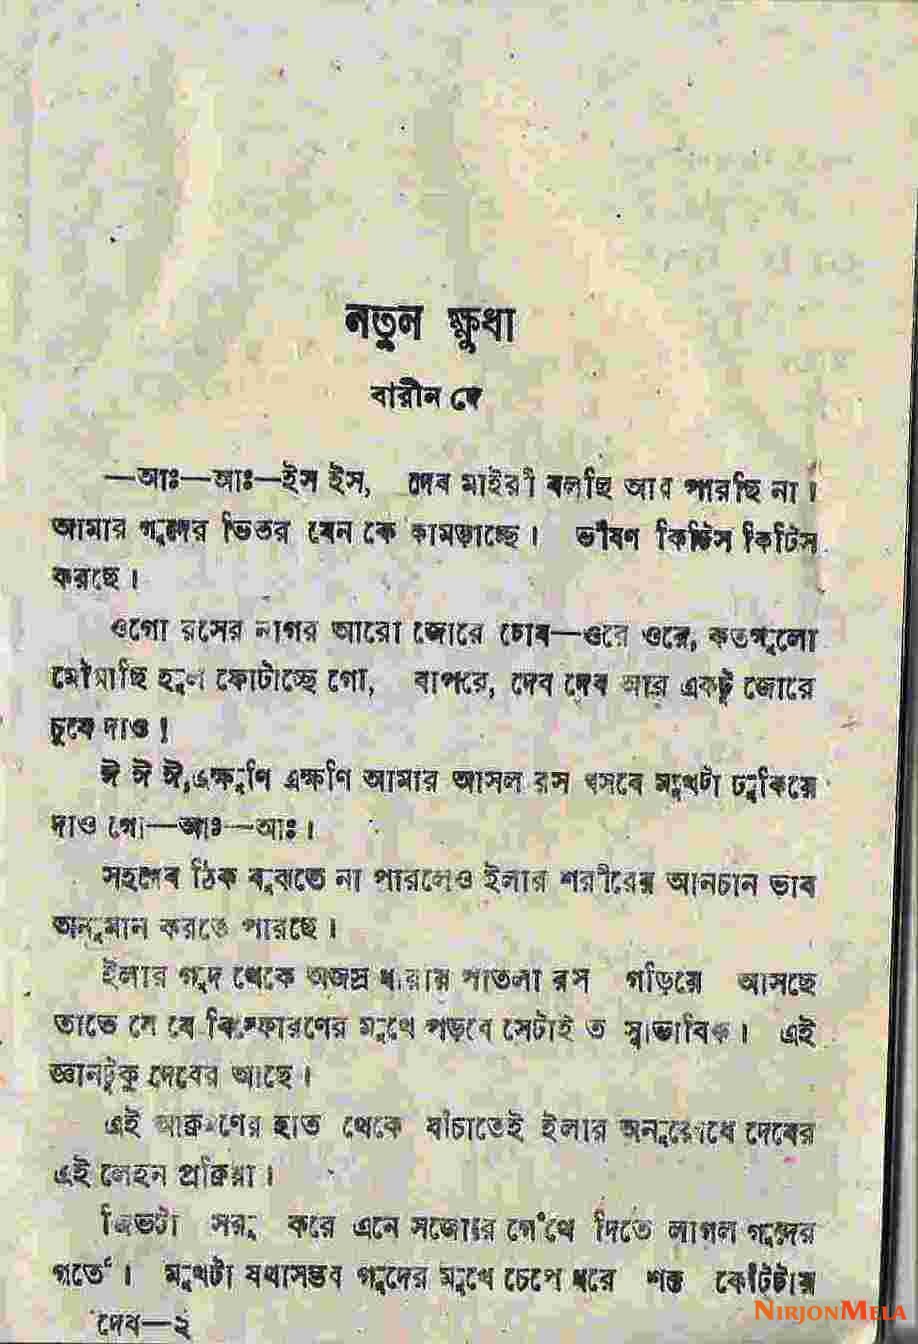 নতুন ক্ষুধা
বারীন দে
—আঃ—আঃ—ইস ইস, দেব মাইরী বলছি আর পারছি না।
আমার গুদের ভিতর যেন কে কামড়াচ্ছে। ভীষণ কিটিস কিটিস
করছে।
ওগো রসের নাগর আরো জোরে চোষ—ওরে ওরে, কতগুলো
মৌমাছি হুল ফোটাচ্ছে গো, বাপরে, দেব দেব আর একটু জোরে
চুষে দাও!
ঈ ঈ ঈ,এক্ষুণি এক্ষণি আমার আসল রস খসবে মুখটা ঢুকিয়ে
দাও গো—আঃ—আঃ।
সহদেব ঠিক বুঝতে না পারলেও ইলার শরীরের আনচান ভাব
অনুমান করতে পারছে।
ইলার গুদ থেকে অজস্র ধারায় পাতলা রস গড়িয়ে আসছে
তাতে সে যে বিস্ফোরণের মুখে পড়বে সেটাই ত স্বাভাবিক। এই
জ্ঞানটুকু দেবের আছে।
এই আক্রমণের হাত থেকে বাঁচাতেই ইলার অনুরোধে দেবের
এই লেহন প্রক্রিয়া।
জিভটা সরু করে এনে সজোরে গেঁথে দিতে লাগল গুদের
গর্তে। মুখটা যথাসম্ভব গুদের মুখে চেপে ধরে শক্ত কোঁটটায়
দেব—২
NIRJONMELA